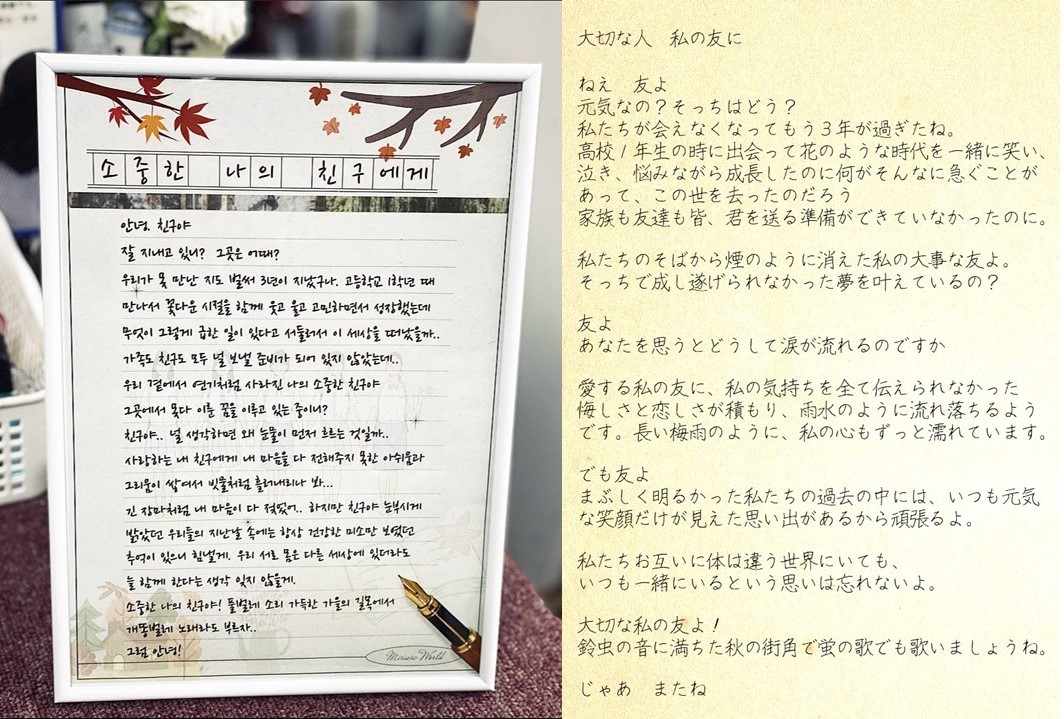 소중한 나의 친구에게
안녕. 친구야
잘 지내고 있니? 그곳은 어때?
우리가 못 만난 지도 벌써 3년이 지났구나. 고등학교 1학년 때
만나서 꽃다운 시절을 함께 웃고 울고 고민하면서 성장했는데
무엇이 그렇게 급한 일이 있다고 서둘러서 이 세상을 떠났을까..
가족도 친구도 모두 널 보낼 준비가 되어 있지 않았는데..
우리 곁에서 연기처럼 사라진 나의 소중한 친구야
그곳에서 못다 이룬 꿈을 이루고 있는 중이니?
친구야.. 널 생각하면 왜 눈물이 먼저 흐르는 것일까..
사랑하는 내 친구에게 내 마음을 다 전해주지 못한 아쉬움과
그리움이 쌓여서 빗물처럼 흘러내리나 봐...
긴 장마처럼 내 마음이 다 젖었어.. 하지만 친구야 눈부시게
밝았던 우리들의 지난날 속에는 항상 건강한 미소만 보였던
추억이 있으니 힘낼게. 우리 서로 몸은 다른 세상에 있더라도
늘 함께 한다는 생각 잊지 않을게.
소중한 나의 친구야! 풀벌레 소리 가득한 가을의 길목에서
개똥벌레 노래라도 부르자..
그럼 안녕!
大切な人　私の友に
ねえ　友よ
元気なの？そっちはどう？
私たちが会えなくなってもう３年が過ぎたね。
高校１年生の時に出会って花のような時代を一緒に笑い、
泣き、悩みながら成長したのに何がそんなに急ぐことが
あって、この世を去ったのだろう
家族も友達も皆、君を送る準備ができていなかったのに。
私たちのそばから煙のように消えた私の大事な友よ。
そっちで成し遂げられなかった夢を叶えているの？
友よ
あなたを思うとどうして涙が流れるのですか
愛する私の友に、私の気持ちを全て伝えられなかった
悔しさと恋しさが積もり、雨水のように流れ落ちるよう
です。長い梅雨のように、私の心もずっと濡れています。
でも友よ
まぶしく明るかった私たちの過去の中には、いつも元気
な笑顔だけが見えた思い出があるから頑張るよ。
私たちお互いに体は違う世界にいても、
いつも一緒にいるという思いは忘れないよ。
大切な私の友よ！
鈴虫の音に満ちた秋の街角で蛍の歌でも歌いましょうね。
じゃあ　またね